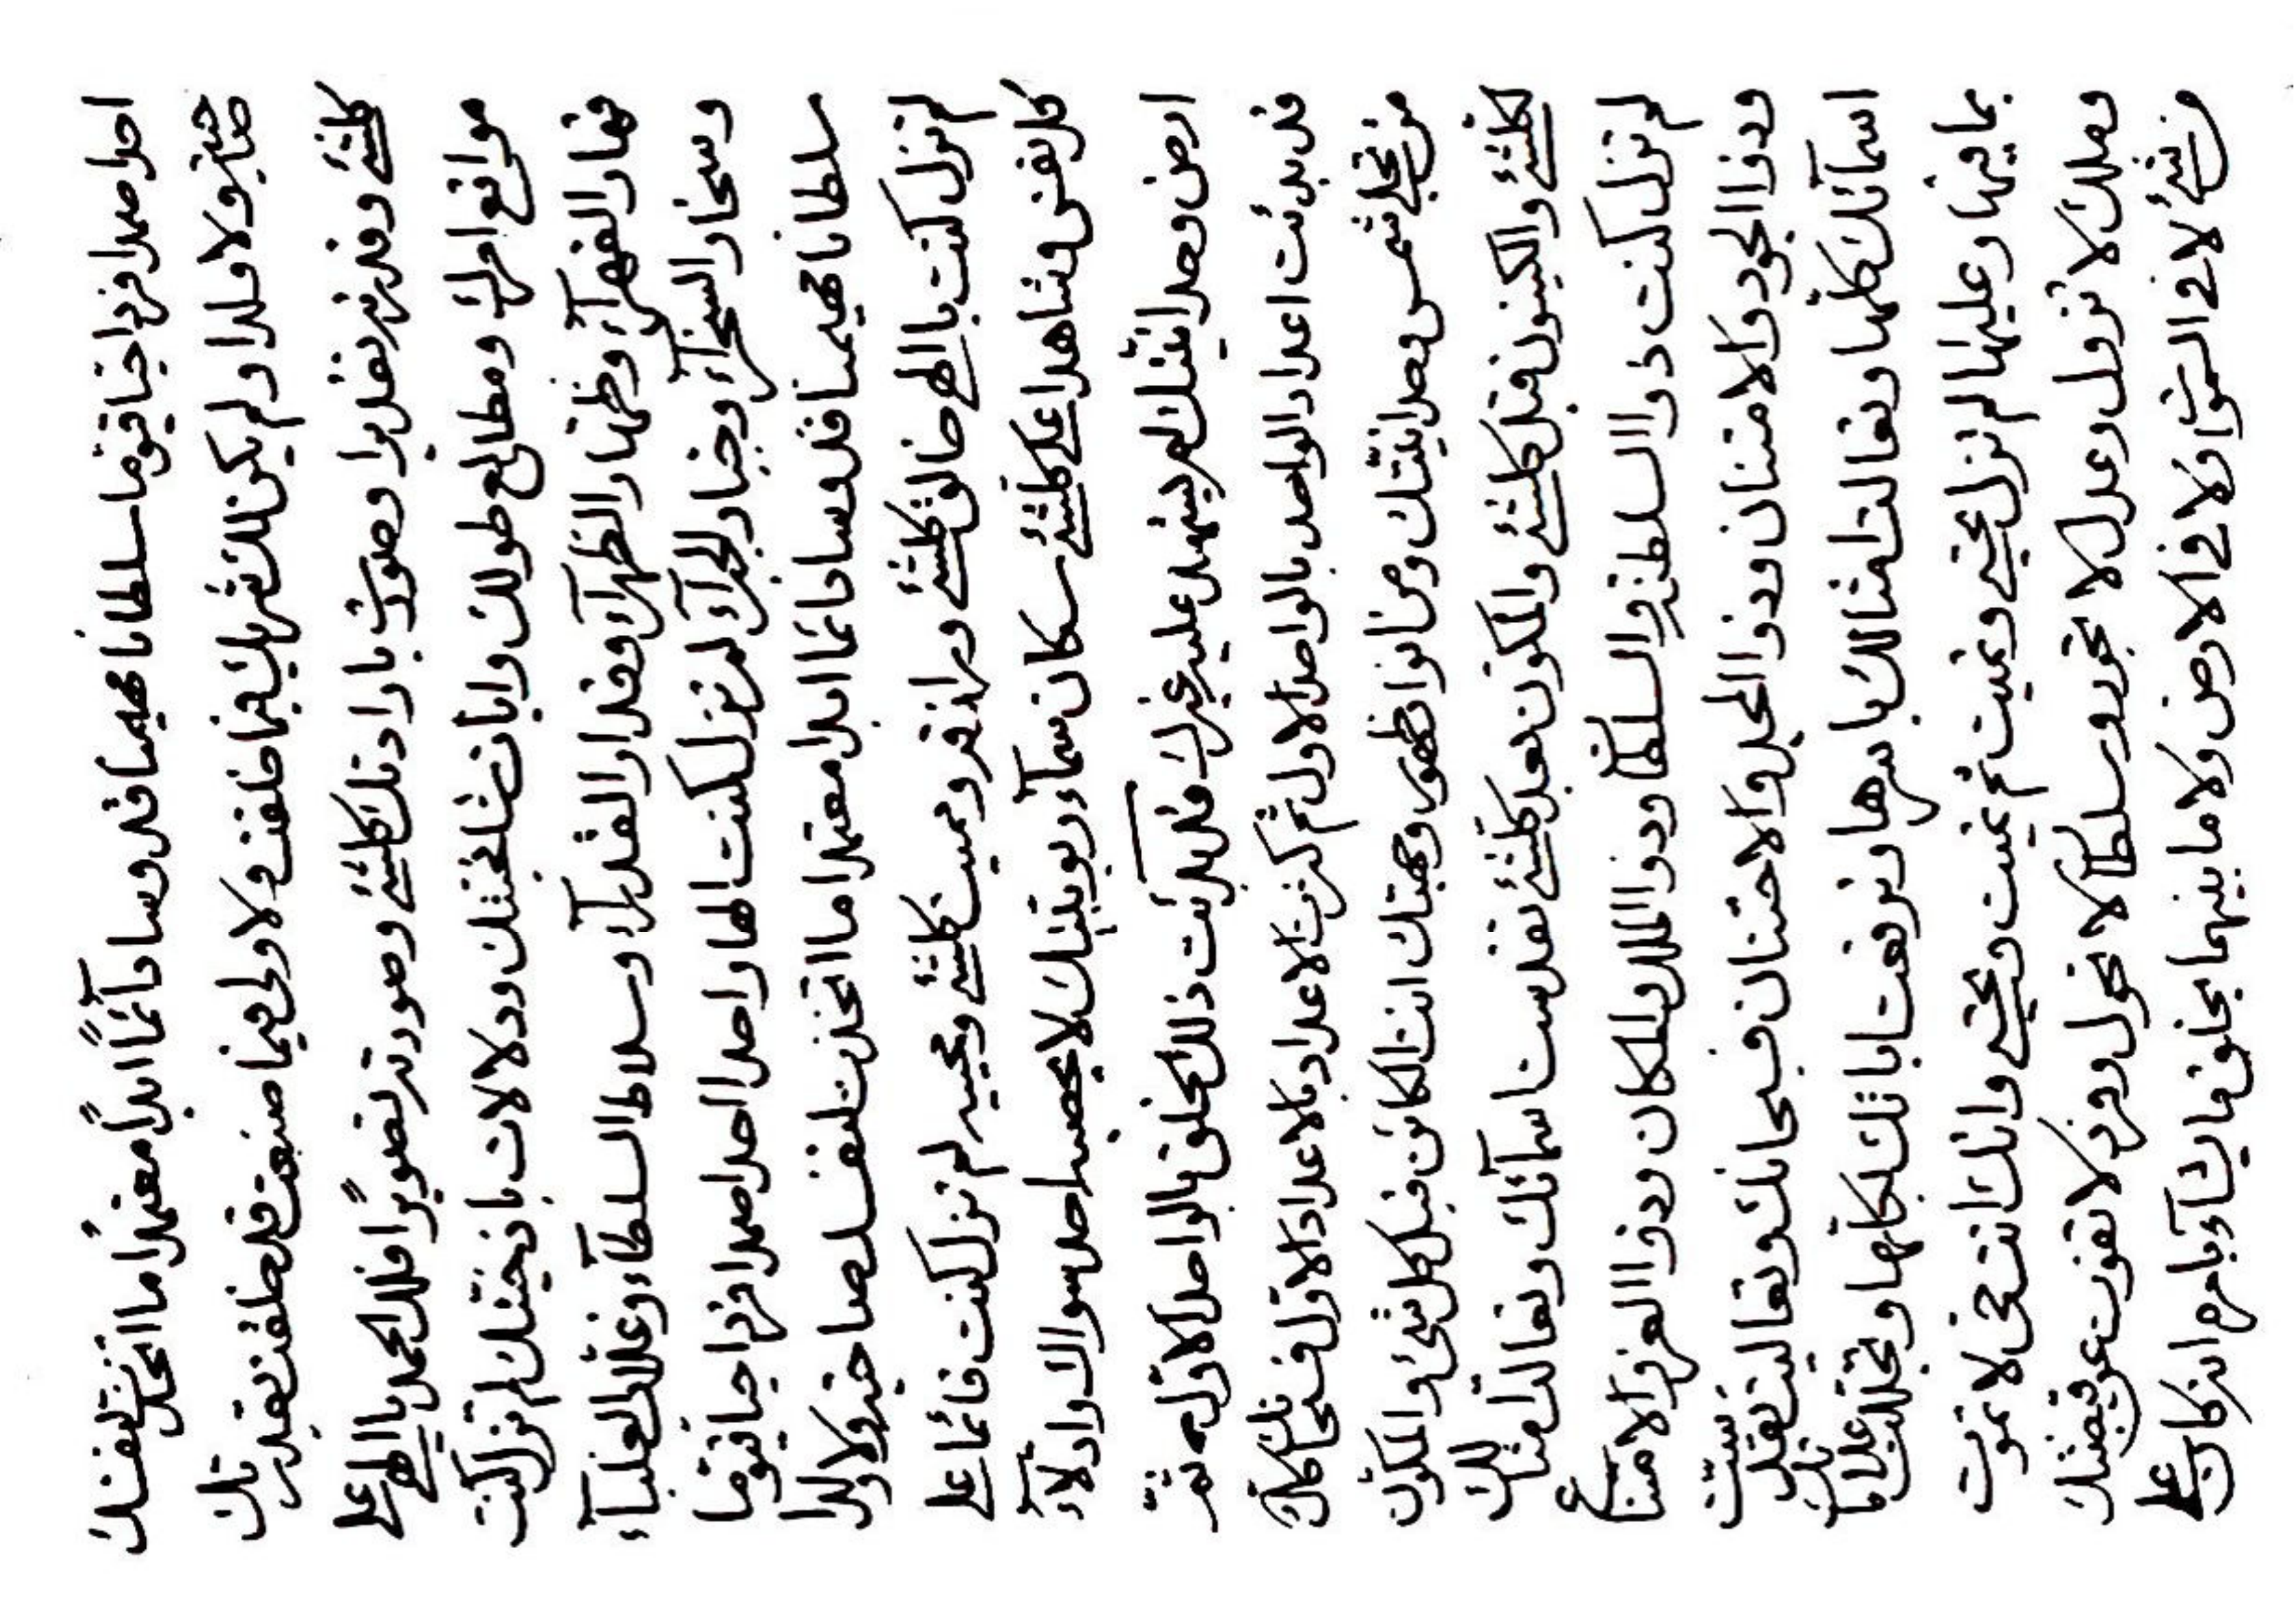 احدا صمدا فردا حيا قيوما سلطانا مهيمنا قدوسا دآئماً ابداً معتمدًا ما اتخذت لنفسك
صاحبة ولا ولدا ولم يكن لك شريك فيما خلقت ولا ولى فيما صنعت قد خلقت بقدرتك
كلشئ وقدرته تقديرا وصورت بارادتك كلشئ وصورته تصويرًا فلك الحمد يا الهى على
مواقع امرك ومطالع طولك وايات ودلالات لم تزل كنت
قهار القهرآء وظهار الظهرآء وقدار القدرآء وسلاط السلطآء وغلاب الغلبآء
وسخار السخرآء وجبار الجبرآء لم تزل كنت الها واحدا احدا صمدا فردا حيا قيوما
سلطانا مهيمنا قدوسا دائما ابدا معتمدا ما اتخذت لنفسك صاحبة ولا ولدا
لم تزل كنت يا الهى خالق كلشئ ورازقه ومميت كلشئ ومحييه لم تزل كنت قائما على
كل نفس وشاهدا على كلشئ سكان سمآء ربوبيتك لا يحصيها احد سواك وادلآء
ارض وحدانيتك لم يشهد عليه غيرك قد بدئت ذلك الخلق بالواحد الاول ثم
قد بدئت اعداد الواحد بالواحد الاول ثم كثرت الاعداد بالاعداد الاول فسبحانك كل
من تجلى شمس وحدانيتك ومن انوار ظهور انت الكائن قبل كل شئ والمكون
لكلشئ والكينون قبل كلشئ والمكون بعد كلشئ تقدست اسمآئك وتعالت امثالك
لم تزل كنت ذوا السلطنة والسلطان وذوا الملك والملكان وذوا العز والامتناع
وذوا الجود والامتنان وذوا المجد والاحتنان فسبحانك وتعاليت تقدست
اسمآئك كلها وتعالت امثالك باسرها وترفعت اياتك بكلها وتجللت علاماتك
بما فيها وعليها لم تزل تحيى وتميت ثم تميت وتحيى وانك انت حى لا تموت
وملك لا تزول وعدل لا تجور وسلطان لا تحول وفرد لا تفوت عن قبضتك
من شئ لا فى السموات ولا فى الارض ولا ما بينهما يخلق ما يشآء بامره انه كان على